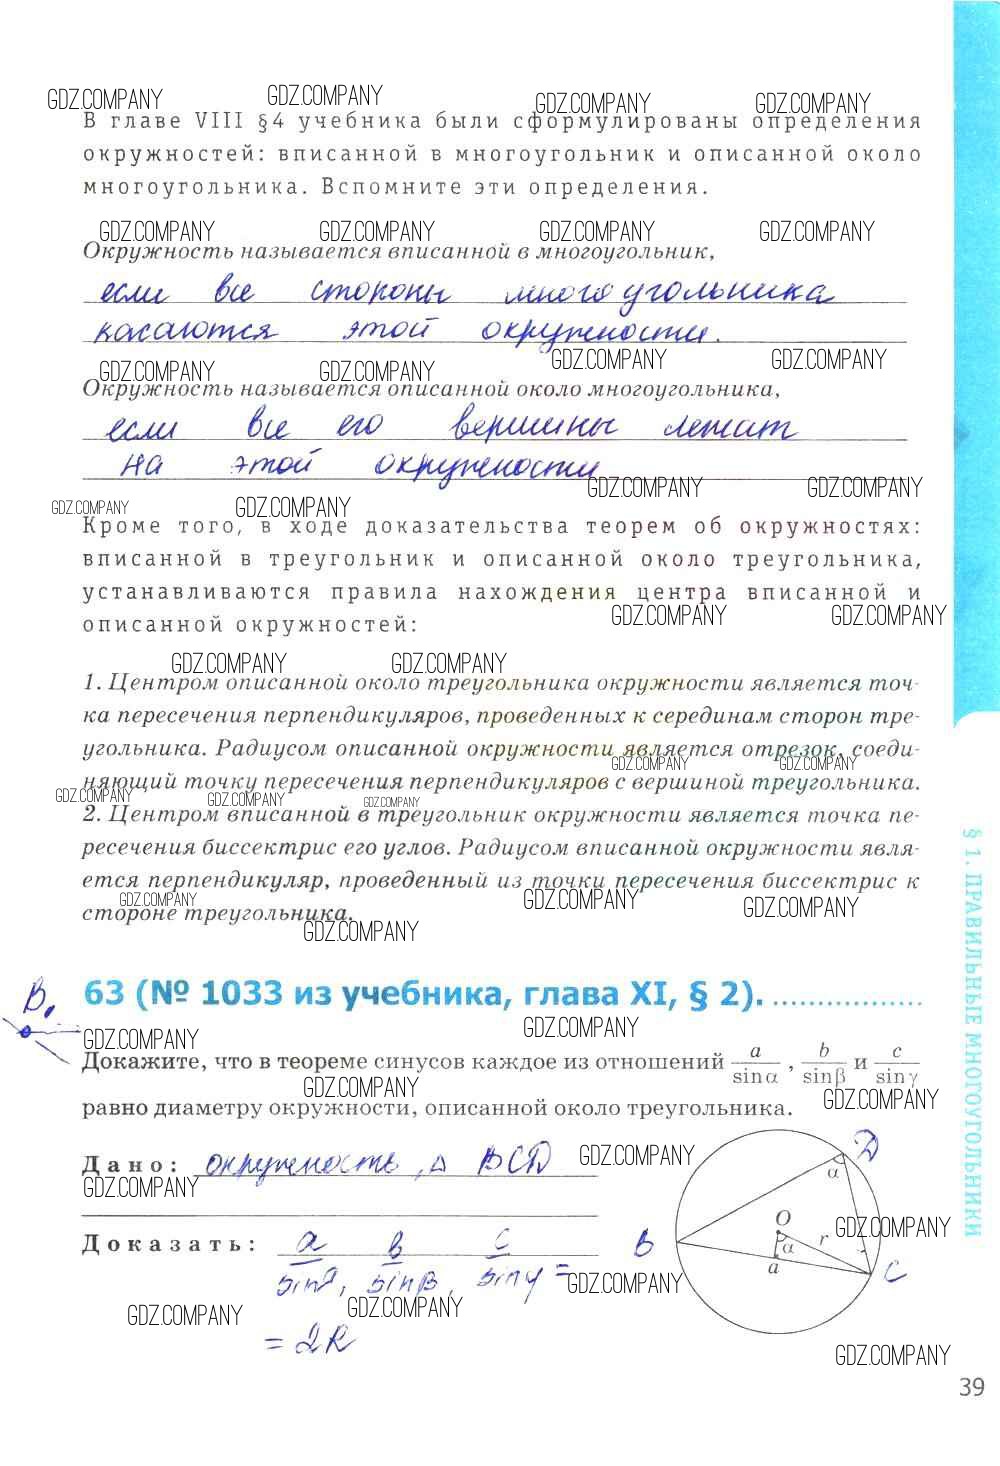 GDZ.COMPANY GDZ.COMPANY GDZ.COMPANY GDZ.COMPANY
В главе VIII §4 учебника были сформулированы определения
окружностей: вписанной в многоугольник и описанной около
многоугольника. Вспомните эти определения.
GDZ.COMPANY GDZ.COMPANY GDZ.COMPANY GDZ.COMPANY
Окружность называется вписанной в многоугольник,
если все стороны многоугольника
касаются этой окружности.
GDZ.COMPANY GDZ.COMPANY GDZ.COMPANY GDZ.COMPANY
Окружность называется описанной около многоугольника,
если все его вершины лежат
на этой окружности
GDZ.COMPANY GDZ.COMPANY GDZ.COMPANY GDZ.COMPANY
Кроме того, в ходе доказательства теорем об окружностях:
вписанной в треугольник и описанной около треугольника,
устанавливаются правила нахождения центра вписанной и
GDZ.COMPANY GDZ.COMPANY
описанной окружностей:
GDZ.COMPANY GDZ.COMPANY
1. Центром описанной около треугольника окружности является точ-
ка пересечения перпендикуляров, проведенных к серединам сторон тре-
угольника. Радиусом описанной окружности является отрезок, соеди-
GDZ.COMPANY GDZ.COMPANY
няющий точку пересечения перпендикуляров с вершиной треугольника.
GDZ.COMPANY GDZ.COMPANY GDZ.COMPANY
2. Центром вписанной в треугольник окружности является точка пе-
ресечения биссектрис его углов. Радиусом вписанной окружности явля-
ется перпендикуляр, проведенный из точки пересечения биссектрис к
GDZ.COMPANY GDZ.COMPANY GDZ.COMPANY
стороне треугольника.
GDZ.COMPANY
§ 1. ПРАВИЛЬНЫЕ МНОГОУГОЛЬНИКИ
В.
63 (№ 1033 из учебника, глава XI, § 2). ..................
GDZ.COMPANY GDZ.COMPANY
Докажите, что в теореме синусов каждое из отношений a/sinα, b/sinβ и c/sinγ
GDZ.COMPANY GDZ.COMPANY
равно диаметру окружности, описанной около треугольника.
Дано: окружность, Δ BCD
GDZ.COMPANY GDZ.COMPANY
Доказать: a/sinα, b/sinβ, c/sinγ =
= 2R
GDZ.COMPANY GDZ.COMPANY GDZ.COMPANY GDZ.COMPANY
D
α
O
r
α
B
a
C
GDZ.COMPANY
39